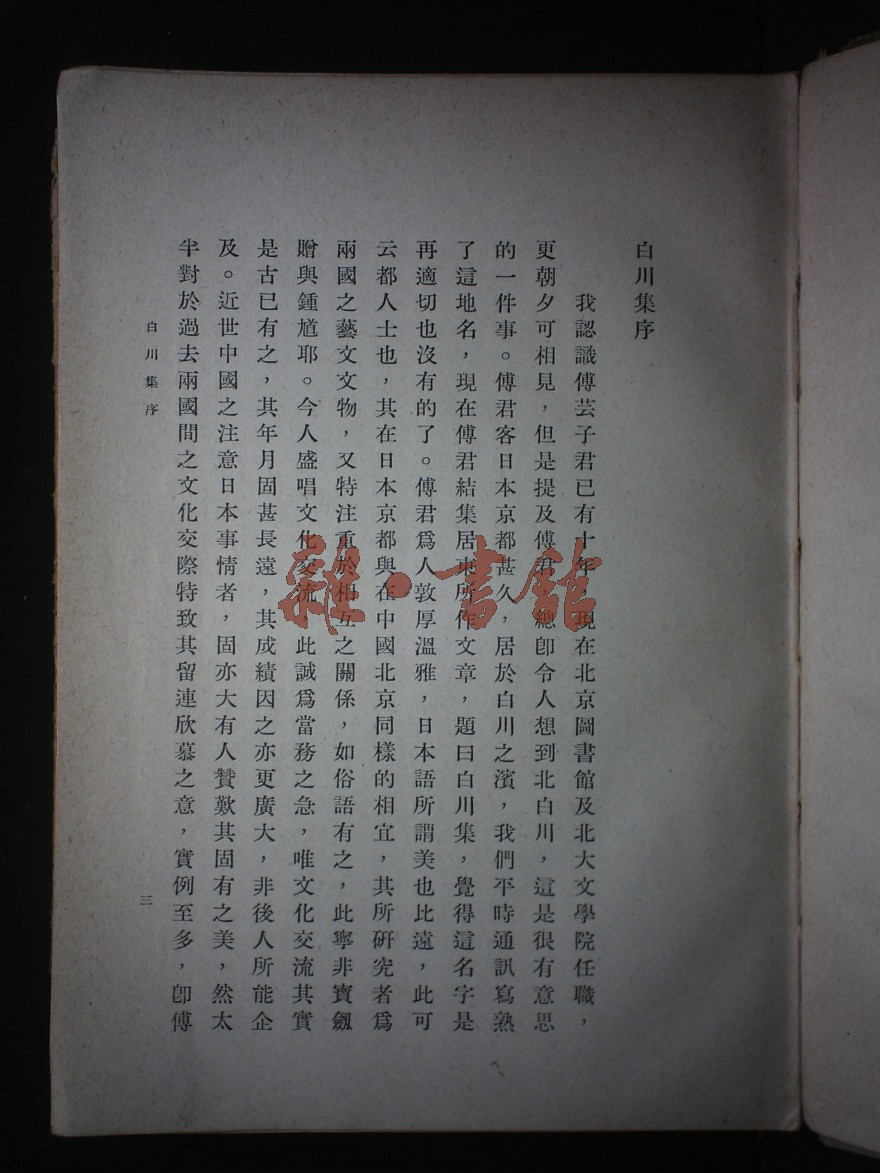 白川集序
我認識傅芸子君已有十年，現在北京圖書館及北大文學院任職，
更朝夕可相見，但是提及傅君，總卽令人想到北白川，這是很有意思
的一件事。傅君客日本京都甚久，居於白川之濱，我們平時通訊寫熟
了這地名，現在傅君結集居東所作文章，題曰白川集，覺得這名字是
再適切也沒有的了。傅君爲人敦厚溫雅，日本語所謂美也比遠，此可
云都人士也，其在日本京都與在中國北京同樣的相宜，其所硏究者爲
兩國之藝文文物，又特注重於相互之關係，如俗語有之，此寧非寶劔
贈與鍾馗耶。今人盛唱文化交流，此誠爲當務之急，唯文化交流其實
是古已有之，其年月固甚長遠，其成績因之亦更廣大，非後人所能企
及。近世中國之注意日本事情者，固亦大有人贊歎其固有之美，然太
半對於過去兩國間之文化交際特致其留連欣慕之意，實例至多，卽傅
白川集序
三
雜·書館